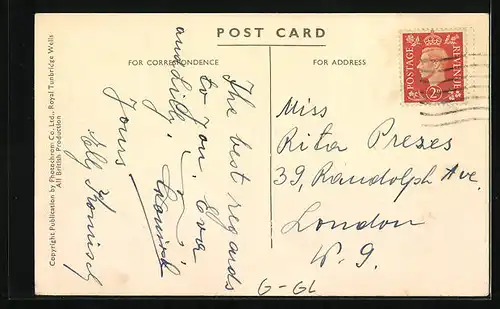 POST CARD
FOR CORRESPONDENCE
FOR ADDRESS
Copyright Publication by Photochrom Co., Ltd., Royal Tunbridge Wells
All British Production
POSTAGE
REVENUE
2D
The best regards
to you. Eva
and Lilly.
Yours
Nelly
Miss
Rita Prezes
39, Randolph Ave.
London
W. 9.
G-GL